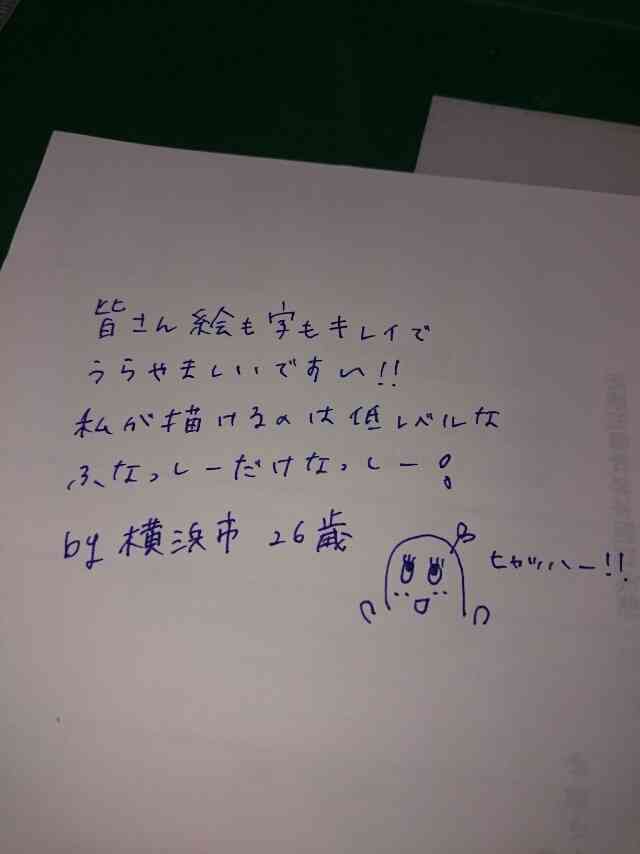 皆さん絵も字もキレイで
うらやましいですい!!
私が描けるのは低レベルな
ふなっしーだけなっしー!
by 横浜市 26歳
ヒャッハー!!